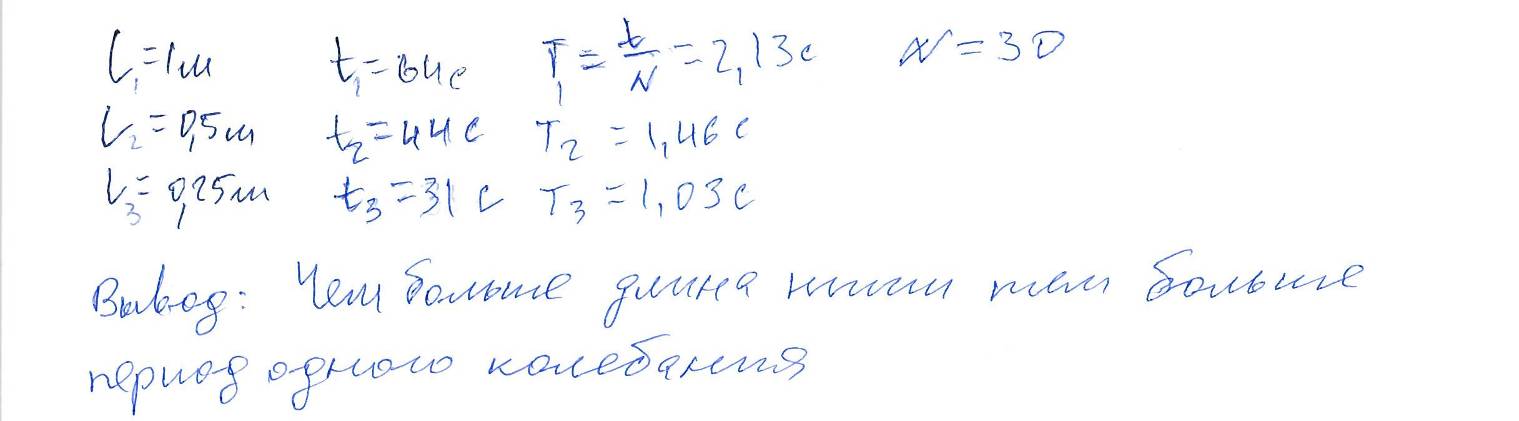 L₁=1м t₁=64с T₁=t/N=2,13с N=30
L₂=0,5м t₂=44с T₂=1,46с
L₃=0,25м t₃=31с T₃=1,03с
Вывод: Чем больше длина нити тем больше
период одного колебания